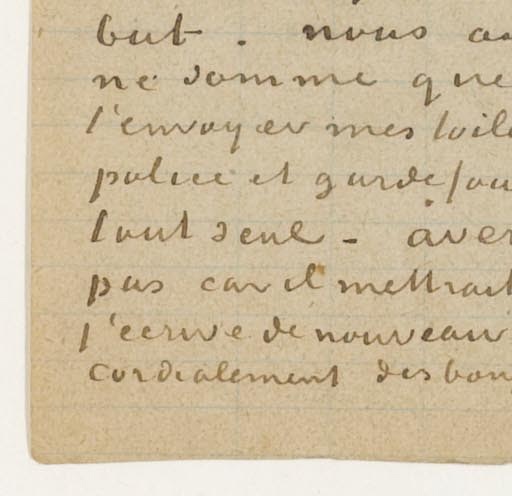 but. nous
ne somme que
t'envoyer mes toile
police et garde fou
tout seul - aver
pas car il mettrait
j'ecrive de nouveau
cordialement des bon